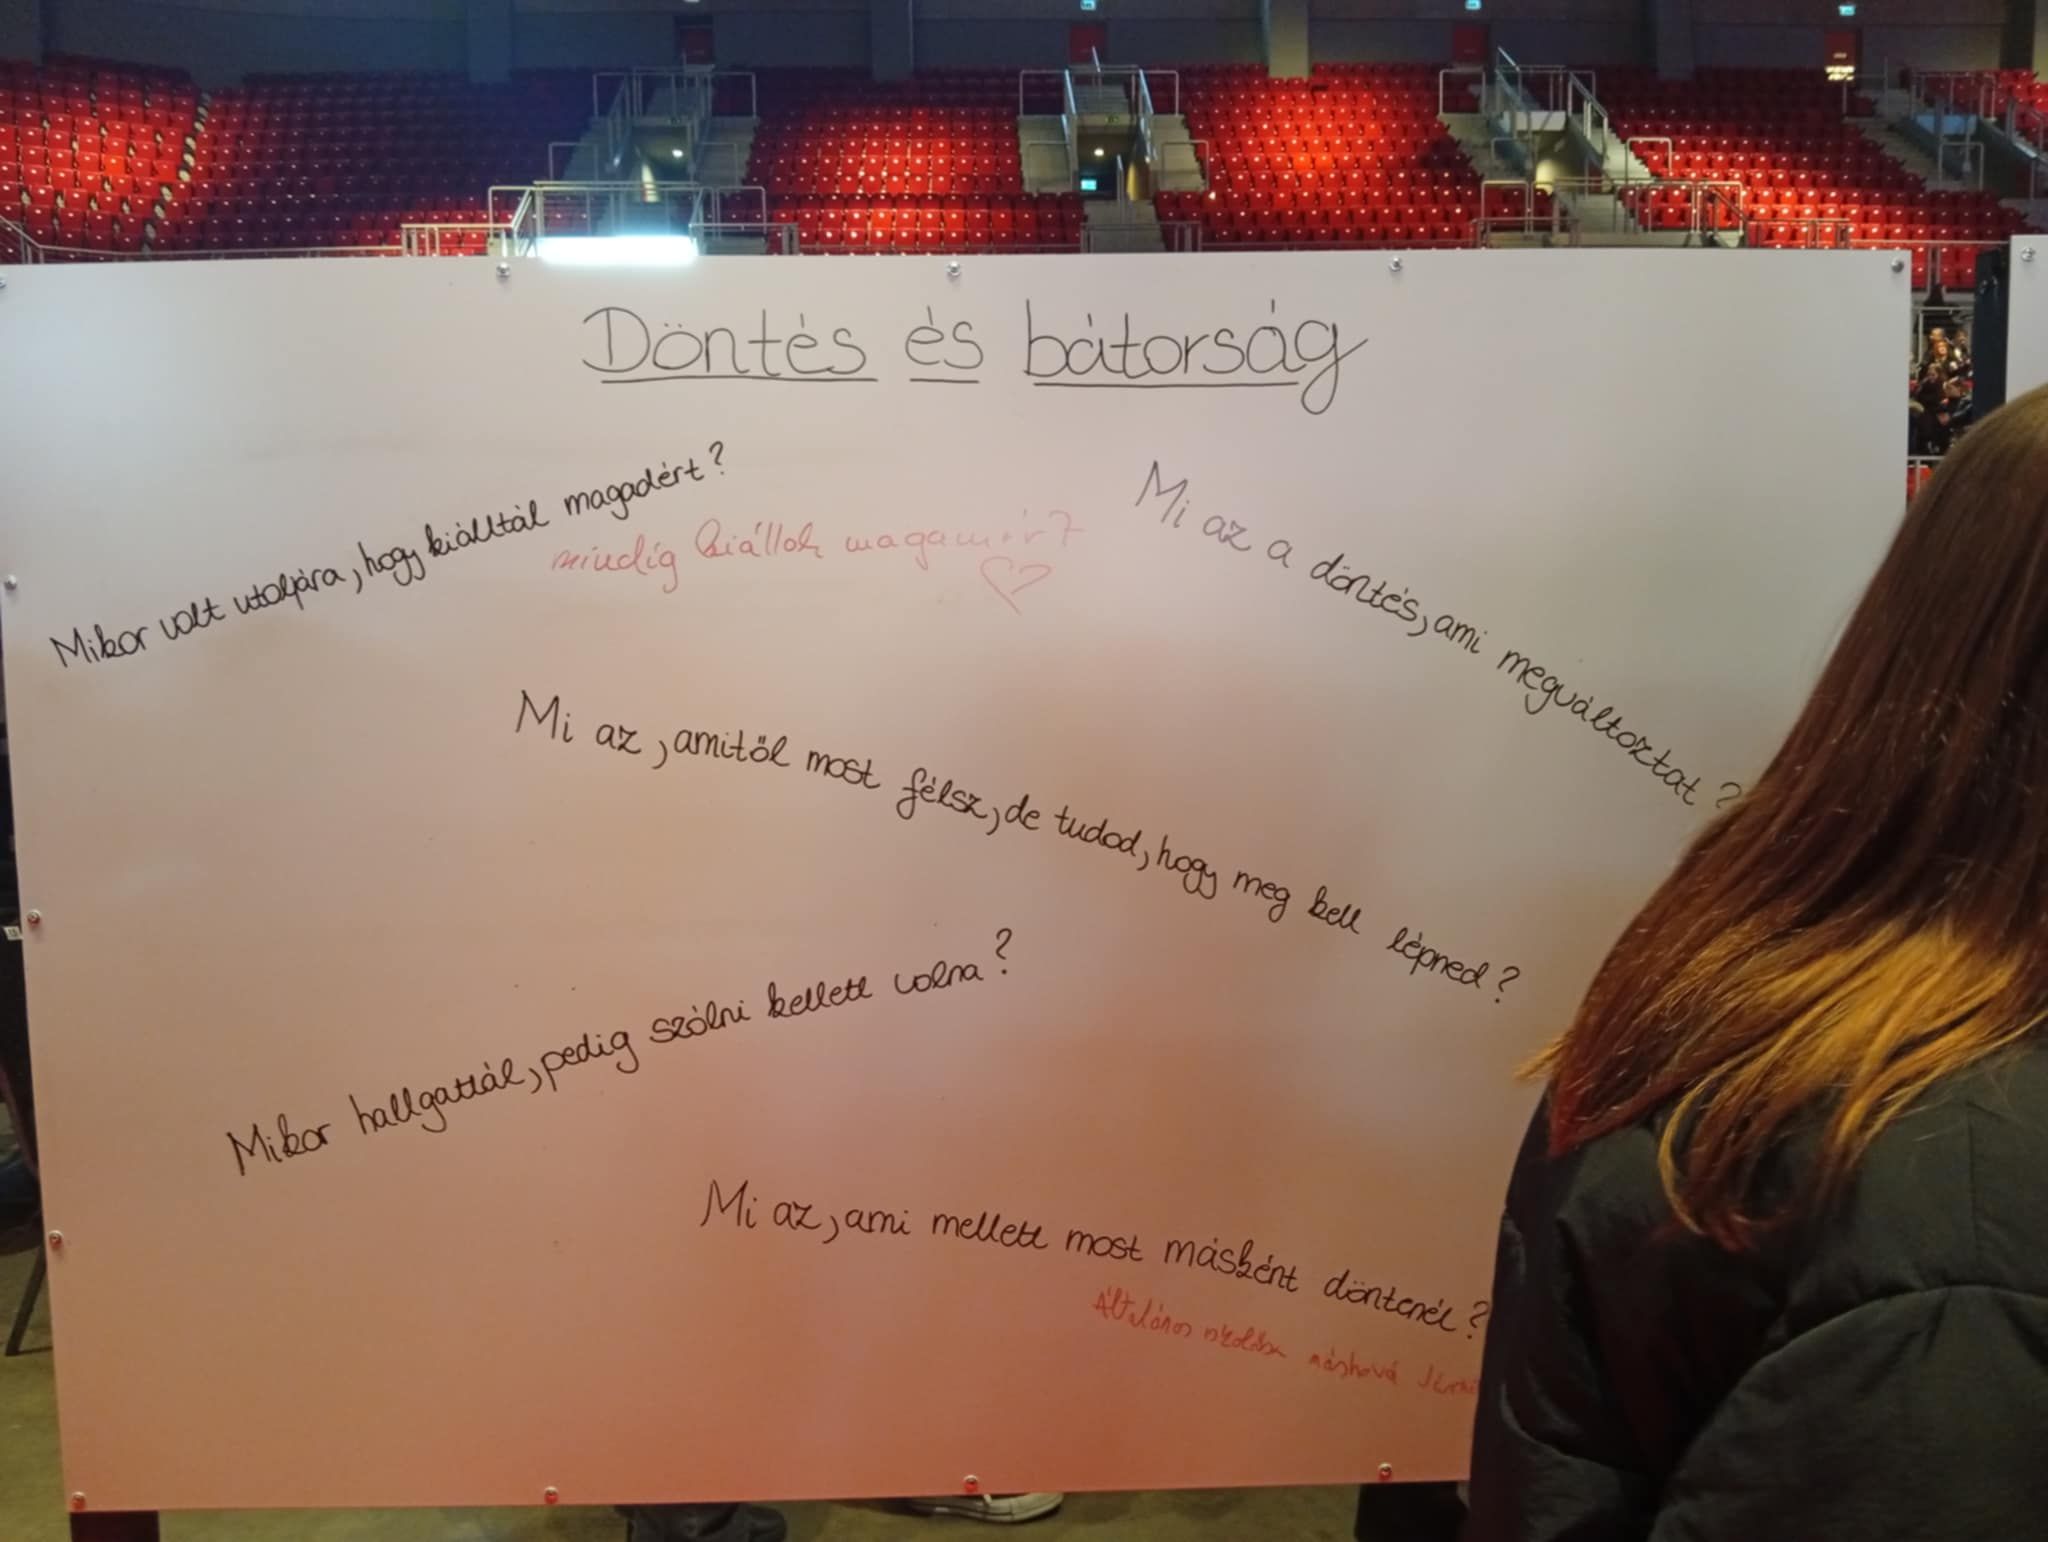 Döntés és bátorság
Mikor volt utoljára, hogy kiálltál magadért?
mindig kiállok magamért
Mi az a döntés, ami megváltoztat?
Mi az, amitől most félsz, de tudod, hogy meg kell lépned?
Mikor hallgattál, pedig szólni kellett volna?
Mi az, ami mellett most másként döntenél?
Általános máshová